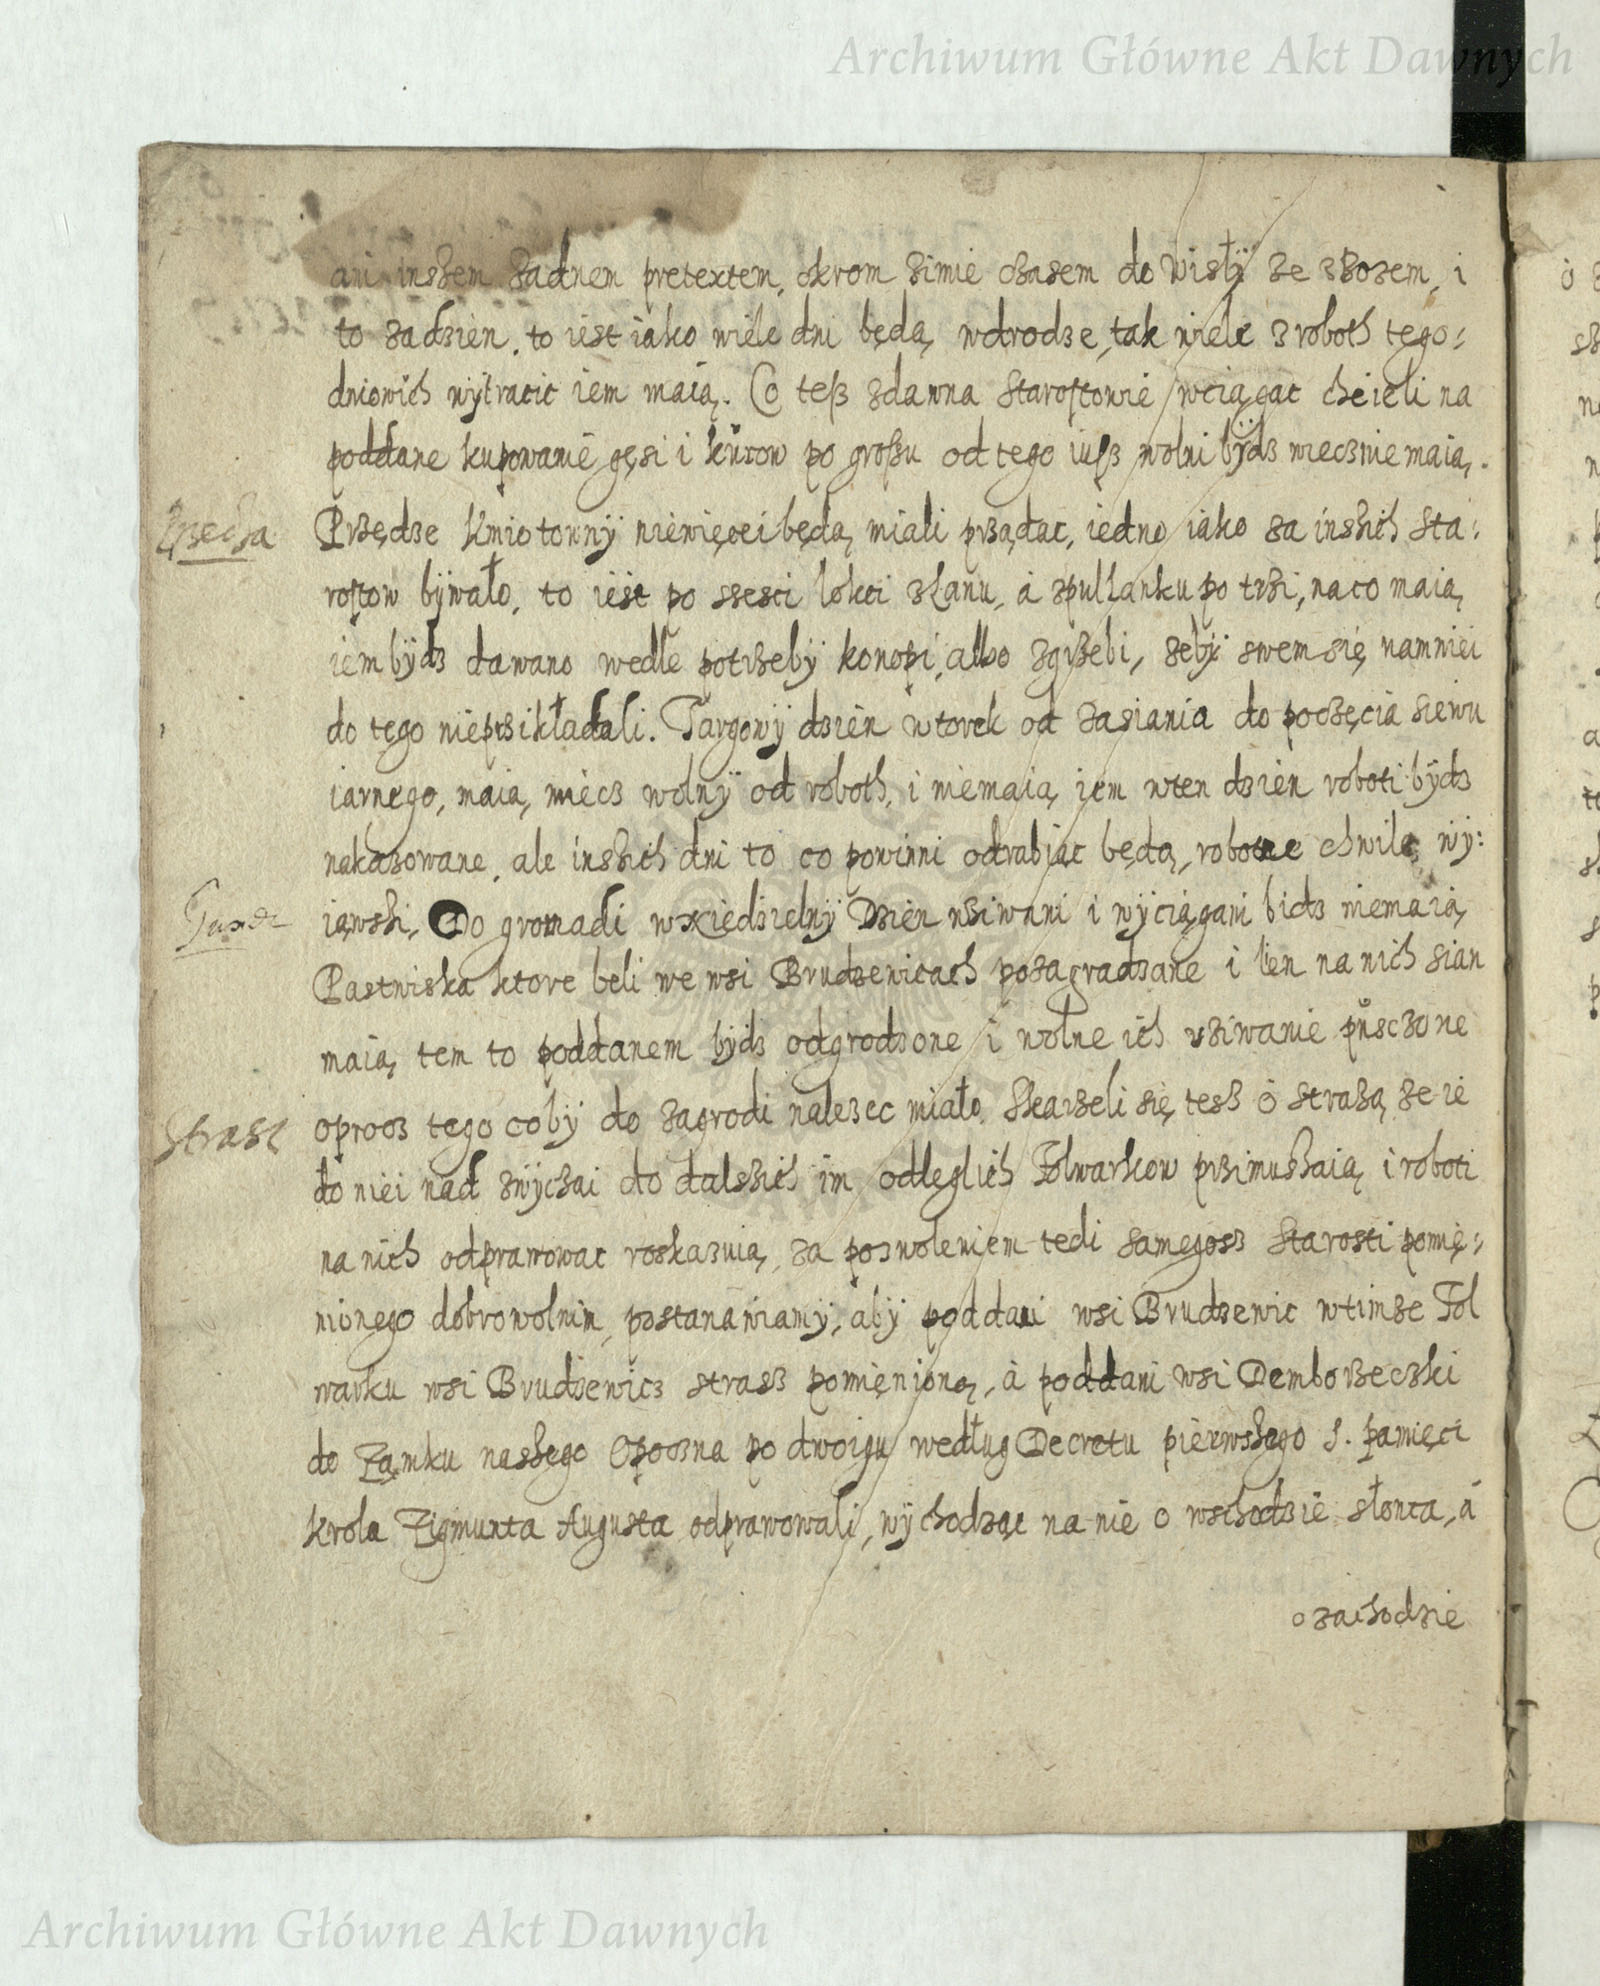 Archiwum Główne Akt Dawnych
ani inszem zadnem pretextem, okrom zimie czasem do Wisłÿ ze zbozem, i
to za dzien, to iest iako wiele dni będą wdrodze, tak wiele z roboth tego:
dniowich wÿtracic iem maią. Co tesz zdawna Starostowie wciągac chcieli na
poddane kupowanie gęsi i kurow po groszu od tego iusz wolni bÿdz wiecznie maią.
Przędza
Przędze kmiotownÿ niewięcei będą miali prządac, iedno iako za inszich Sta:
rostow bÿwało, to iest po szesci lokci złanu, a zpułłanku po trzi, na co maią
iem bÿdz dawano wedle potrzebÿ konopi, albo zgrzebi, zebÿ swem się namniei
do tego nieprzikładali. Targowÿ dzien wtorek od zasiania do poczęcia siewu
iarnego, maią miecz wolnÿ od roboth, i niemaią iem wten dzien roboti bÿdz
nakazowane, ale inszich dni to co powinni odrabiac będą, robotne chwile wÿ:
iąwszi. Do gromadi wNiedzielnÿ Dzien wziwani i wÿciągani bidz niemaią
Pastwiska ktore beli we wsi Brudzewicach pozagradzane i len na nich sian
maią tem to poddanem bÿdz odgrodzone i wolne ich uziwanie pusczone
Straz
oprocz tego cobÿ do zagrodi nalezec miało. Skarzeli się tesz o strazą ze ie
do niei nad zwÿczai do dalszich im odleglich Folwarkow przimuszaią i roboti
na nich odprawowac roskazuią, za pozwoleniem tedi samegosz Starosti pomię:
nionego dobrowolnim, postanawiamÿ, abÿ poddani wsi Brudzewic wtimze Fol
warku wsi Brudzewicz strasz pomięnioną, a poddani wsi Demborzeczki
do Zamku naszego Opoczna po dwoigu według Decretu pierwszego S. pamięci
krola Zigmunta Augusta odprawowali, wÿchodząc na nie o wschodzie słonca, a
o zachodzie
Archiwum Główne Akt Dawnych